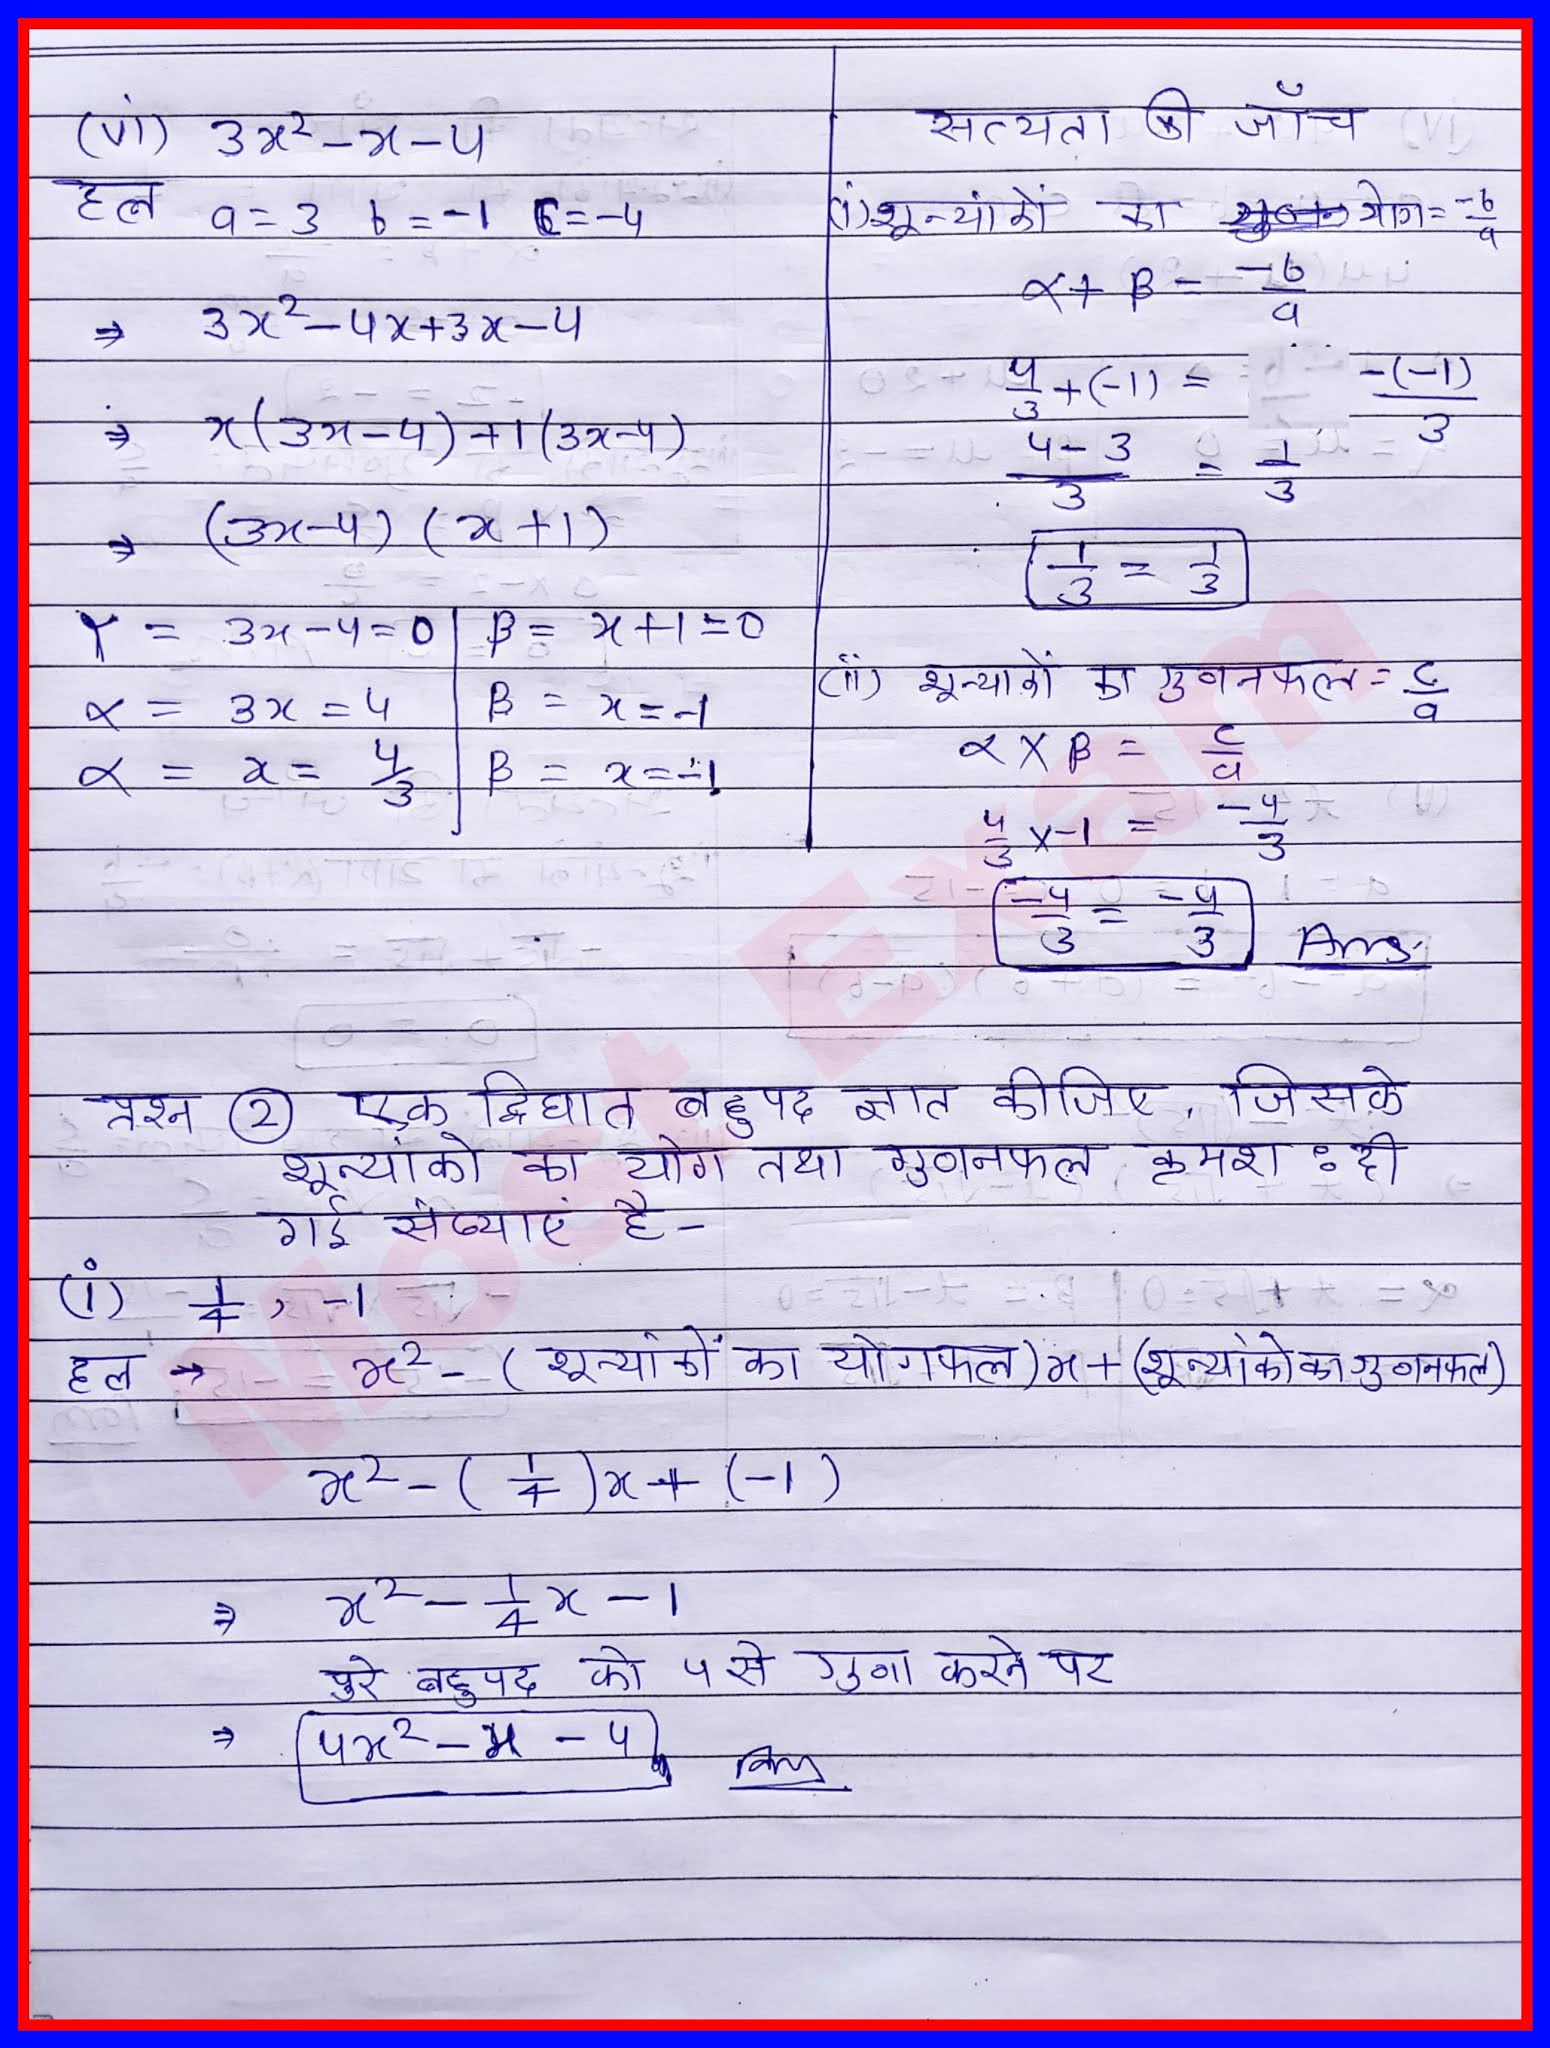 (vi) 3x² - x - 4
हल a = 3 b = -1 c = -4
⇒ 3x² - 4x + 3x - 4
⇒ x(3x - 4) + 1(3x - 4)
⇒ (3x - 4) (x + 1)
γ = 3x - 4 = 0 | β = x + 1 = 0
α = 3x = 4 | β = x = -1
α = x = 4/3 | β = x = -1
सत्यता की जाँच
(i) शून्यांकों का योग = -b/a
α + β = -b/a
4/3 + (-1) = -(-1)/3
4 - 3/3 = 1/3
1/3 = 1/3
(ii) शून्यांकों का गुणनफल = c/a
α × β = c/a
4/3 × -1 = -4/3
-4/3 = -4/3 Ans.
प्रश्न 2 एक द्विघात बहुपद ज्ञात कीजिए, जिसके
शून्यांको का योग तथा गुणनफल क्रमश : दी
गई संख्याएं है -
(i) 1/4 , -1
हल → x² - (शून्यांकों का योगफल)x + (शून्यांको का गुणनफल)
x² - (1/4)x + (-1)
⇒ x² - 1/4 x - 1
पुरे बहुपद को 4 से गुणा करने पर
⇒ 4x² - x - 4 Ans
Most Exam